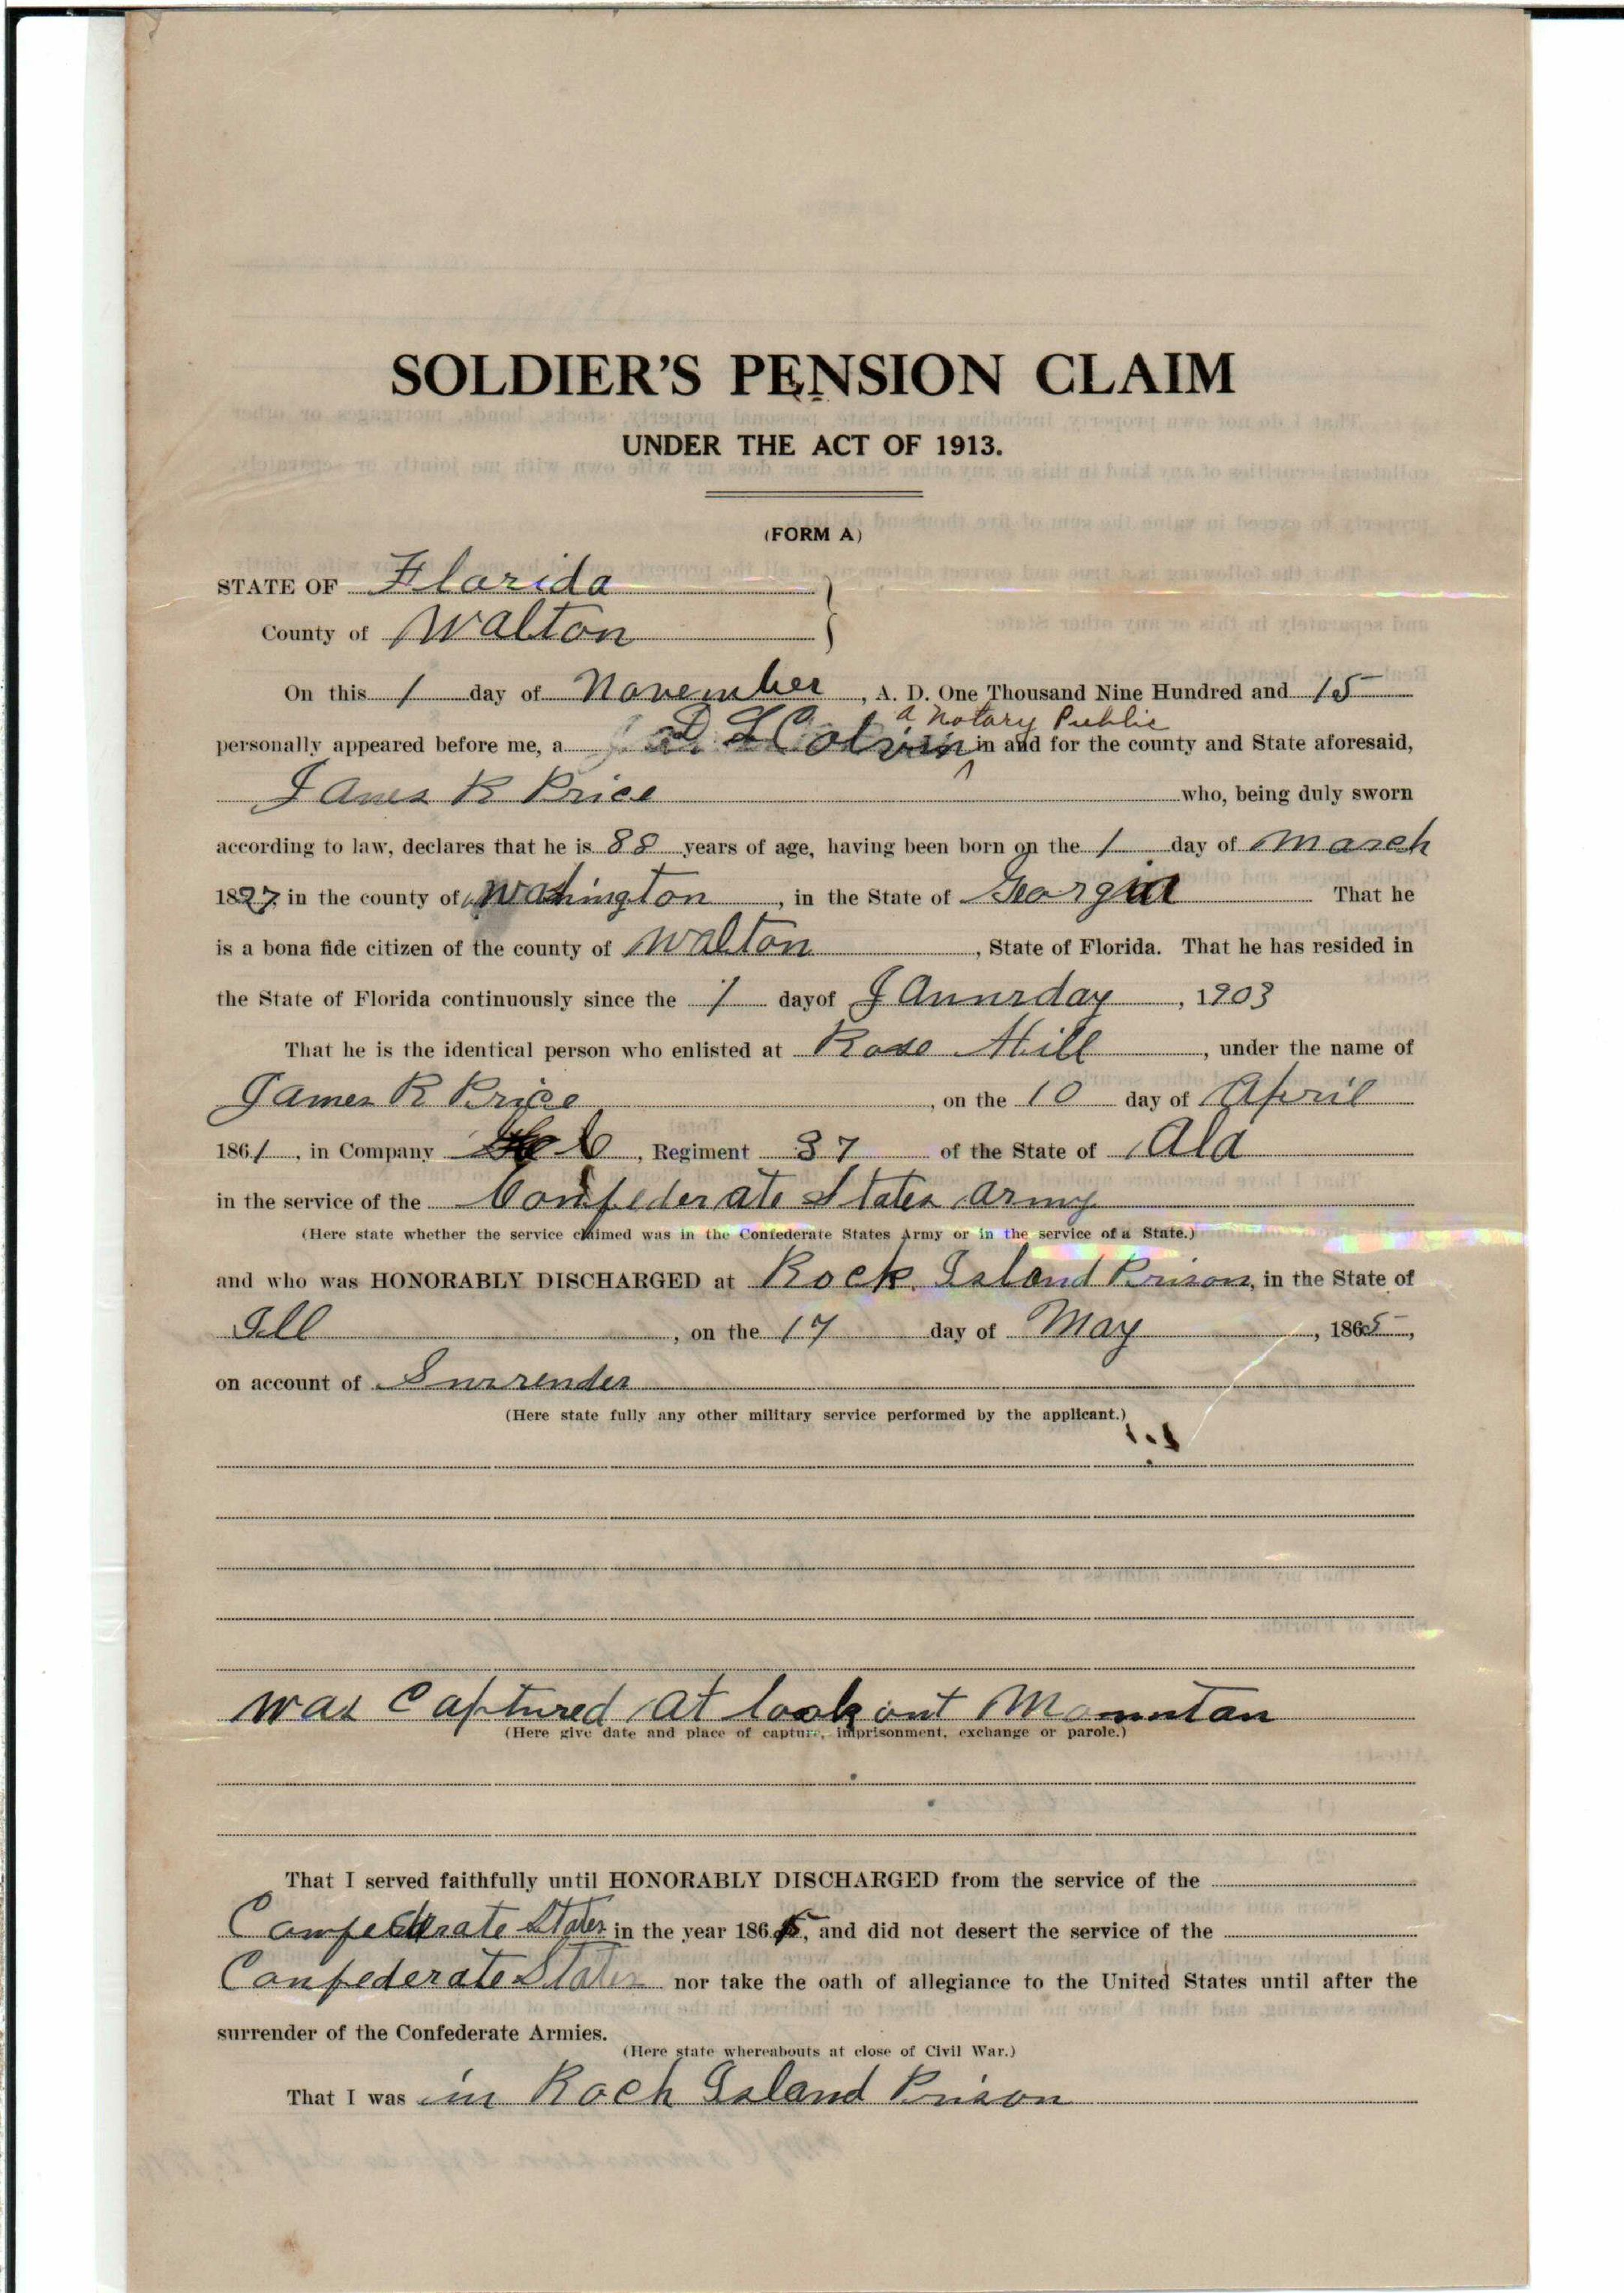 SOLDIER'S PENSION CLAIM
UNDER THE ACT OF 1913.
(FORM A)
STATE OF Florida
County of Walton
On this 1 day of November, A. D. One Thousand Nine Hundred and 15
a Notary Public
personally appeared before me, a D L Colvin in and for the county and State aforesaid,
James R Price who, being duly sworn
according to law, declares that he is 88 years of age, having been born on the 1 day of March
1827 in the county of Washington, in the State of Georgia That he
is a bona fide citizen of the county of Walton, State of Florida. That he has resided in
the State of Florida continuously since the 1 day of Jannrday, 1903
That he is the identical person who enlisted at Rose Hill, under the name of
James R Price, on the 10 day of April
1861, in Company C, Regiment 37 of the State of Ala
in the service of the Confederate States Army
(Here state whether the service claimed was in the Confederate States Army or in the service of a State.)
and who was HONORABLY DISCHARGED at Rock Island Prison, in the State of
Ill, on the 17 day of May, 1865,
on account of Surrender
(Here state fully any other military service performed by the applicant.)
was Captured at look out Mountan
(Here give date and place of capture, imprisonment, exchange or parole.)
That I served faithfully until HONORABLY DISCHARGED from the service of the
Confederate States in the year 1865, and did not desert the service of the
Confederate States nor take the oath of allegiance to the United States until after the
surrender of the Confederate Armies.
(Here state whereabouts at close of Civil War.)
That I was in Rock Island Prison